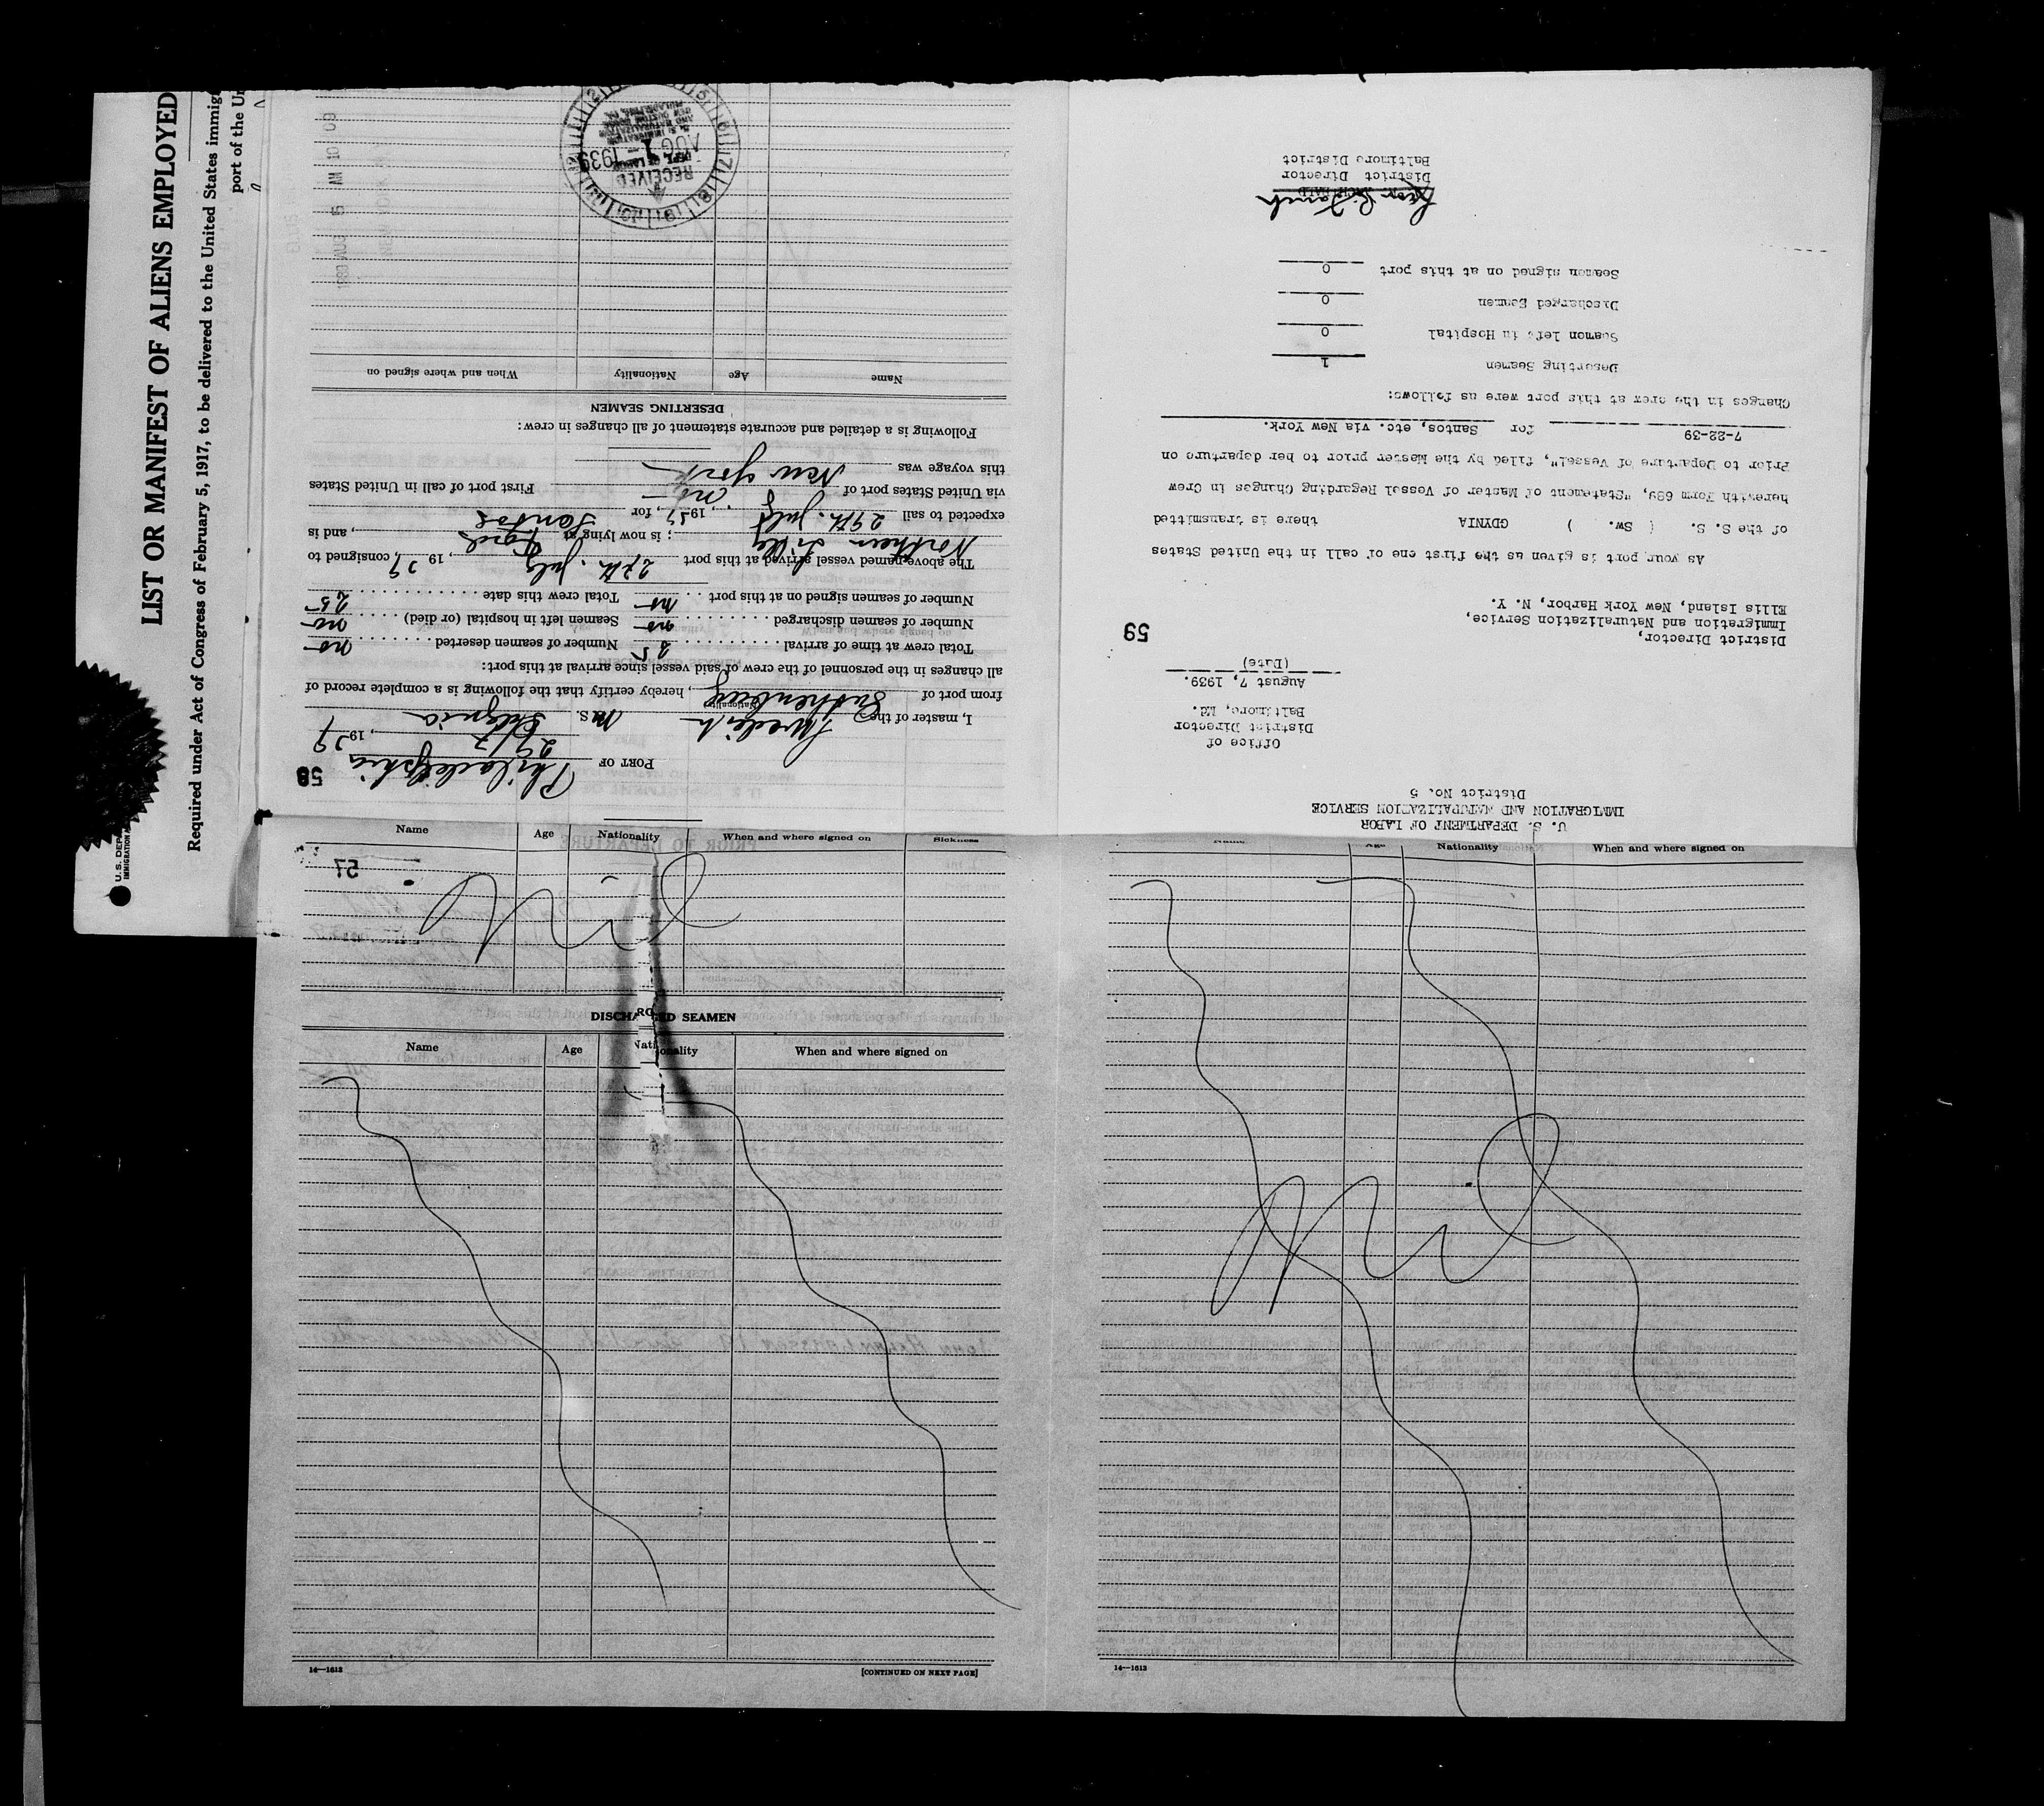 LIST OR MANIFEST OF ALIENS EMPLOYED
Required under Act of Congress of February 5, 1917, to be delivered to the United States immig
port of the U
U. S. DEP
IMMIGRATION
58
PORT OF Philadelphia
29/7, 1939
I, master of the Swedish M S. Gdynia
Nationality
from port of Gothenburg, hereby certify that the following is a complete record of
all changes in the personnel of the crew of said vessel since arrival at this port:
Total crew at time of arrival 25 Number of seamen deserted no
Number of seamen discharged no Seamen left in hospital (or died) no
Number of seamen signed on at this port no Total crew this date 25
The above-named vessel arrived at this port 27th. July, 1939, consigned to
Northern ; is now lying at , and is
expected to sail 29th. July, 1939, for Santos
via United States port of no First port of call in United States
this voyage was New York
Following is a detailed and accurate statement of all changes in crew:
DESERTING SEAMEN
Name Age Nationality When and where signed on
RECEIVED
DEPT. OF LABOR
AUG 1 - 1939
U. S. IMMIGRATION
AND NATURALIZATION
1939 AUG 5 AM 10 09
U. S. DEPARTMENT OF LABOR
IMMIGRATION AND NATURALIZATION SERVICE
District No. 5
Office of
District Director
Baltimore, Md.
August 7, 1939.
(Date)
59
District Director,
Immigration and Naturalization Service,
Ellis Island, New York Harbor, N. Y.
As your port is given as the first one of call in the United States
of the S. S. ( Sw. ) GDYNIA there is transmitted
herewith Form 689, "Statement of Master of Vessel Regarding Changes in Crew
Prior to Departure of Vessel", filed by the Master prior to her departure on
7-22-39 for Santos, etc. via New York.
Changes in the crew at this port were as follows:
Deserting Seamen 1
Seamen left in Hospital 0
Discharged Seamen 0
Seamen signed on at this port 0
District Director
Baltimore District
Name Age Nationality When and where signed on Sickness
57
Nil
DISCHARGED SEAMEN
Name Age Nationality When and where signed on
14—1613 [CONTINUED ON NEXT PAGE]
Name Age Nationality When and where signed on
Nil
14—1613